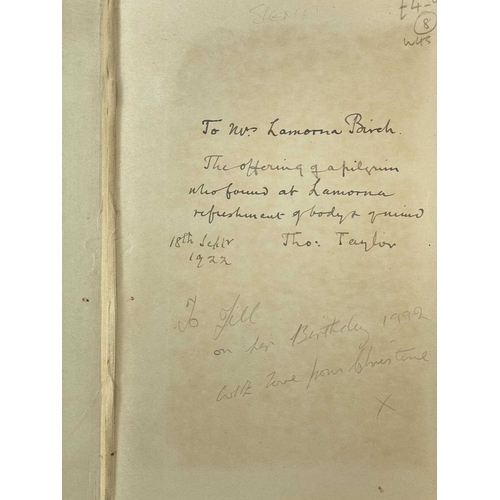 £4-
8
To Mrs Lamorna Birch.
The offering of a pilgrim
who found at Lamorna
refreshment of body & mind
18th Septr Tho: Taylor
1922
To Jill
on her Birthday 1992
with love from Christine
X